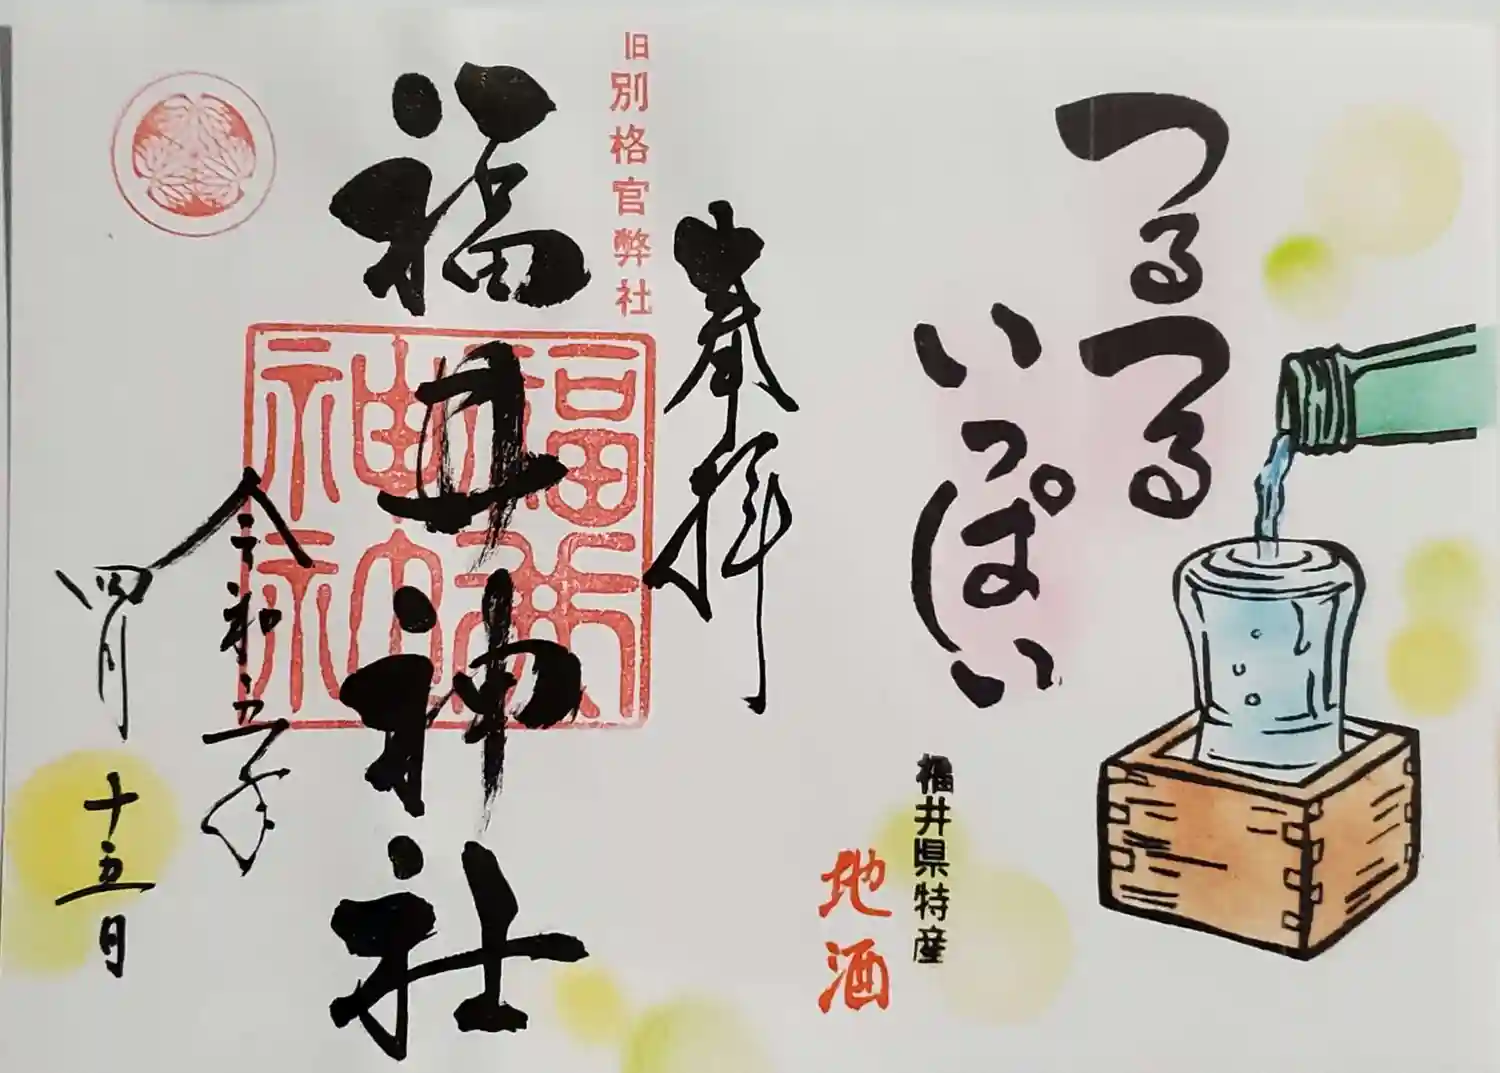 つるつる
いっぱい
福井県特産
地酒
奉拝
旧別格官弊社
福井神社
福井神社
令和五年
四月十五日